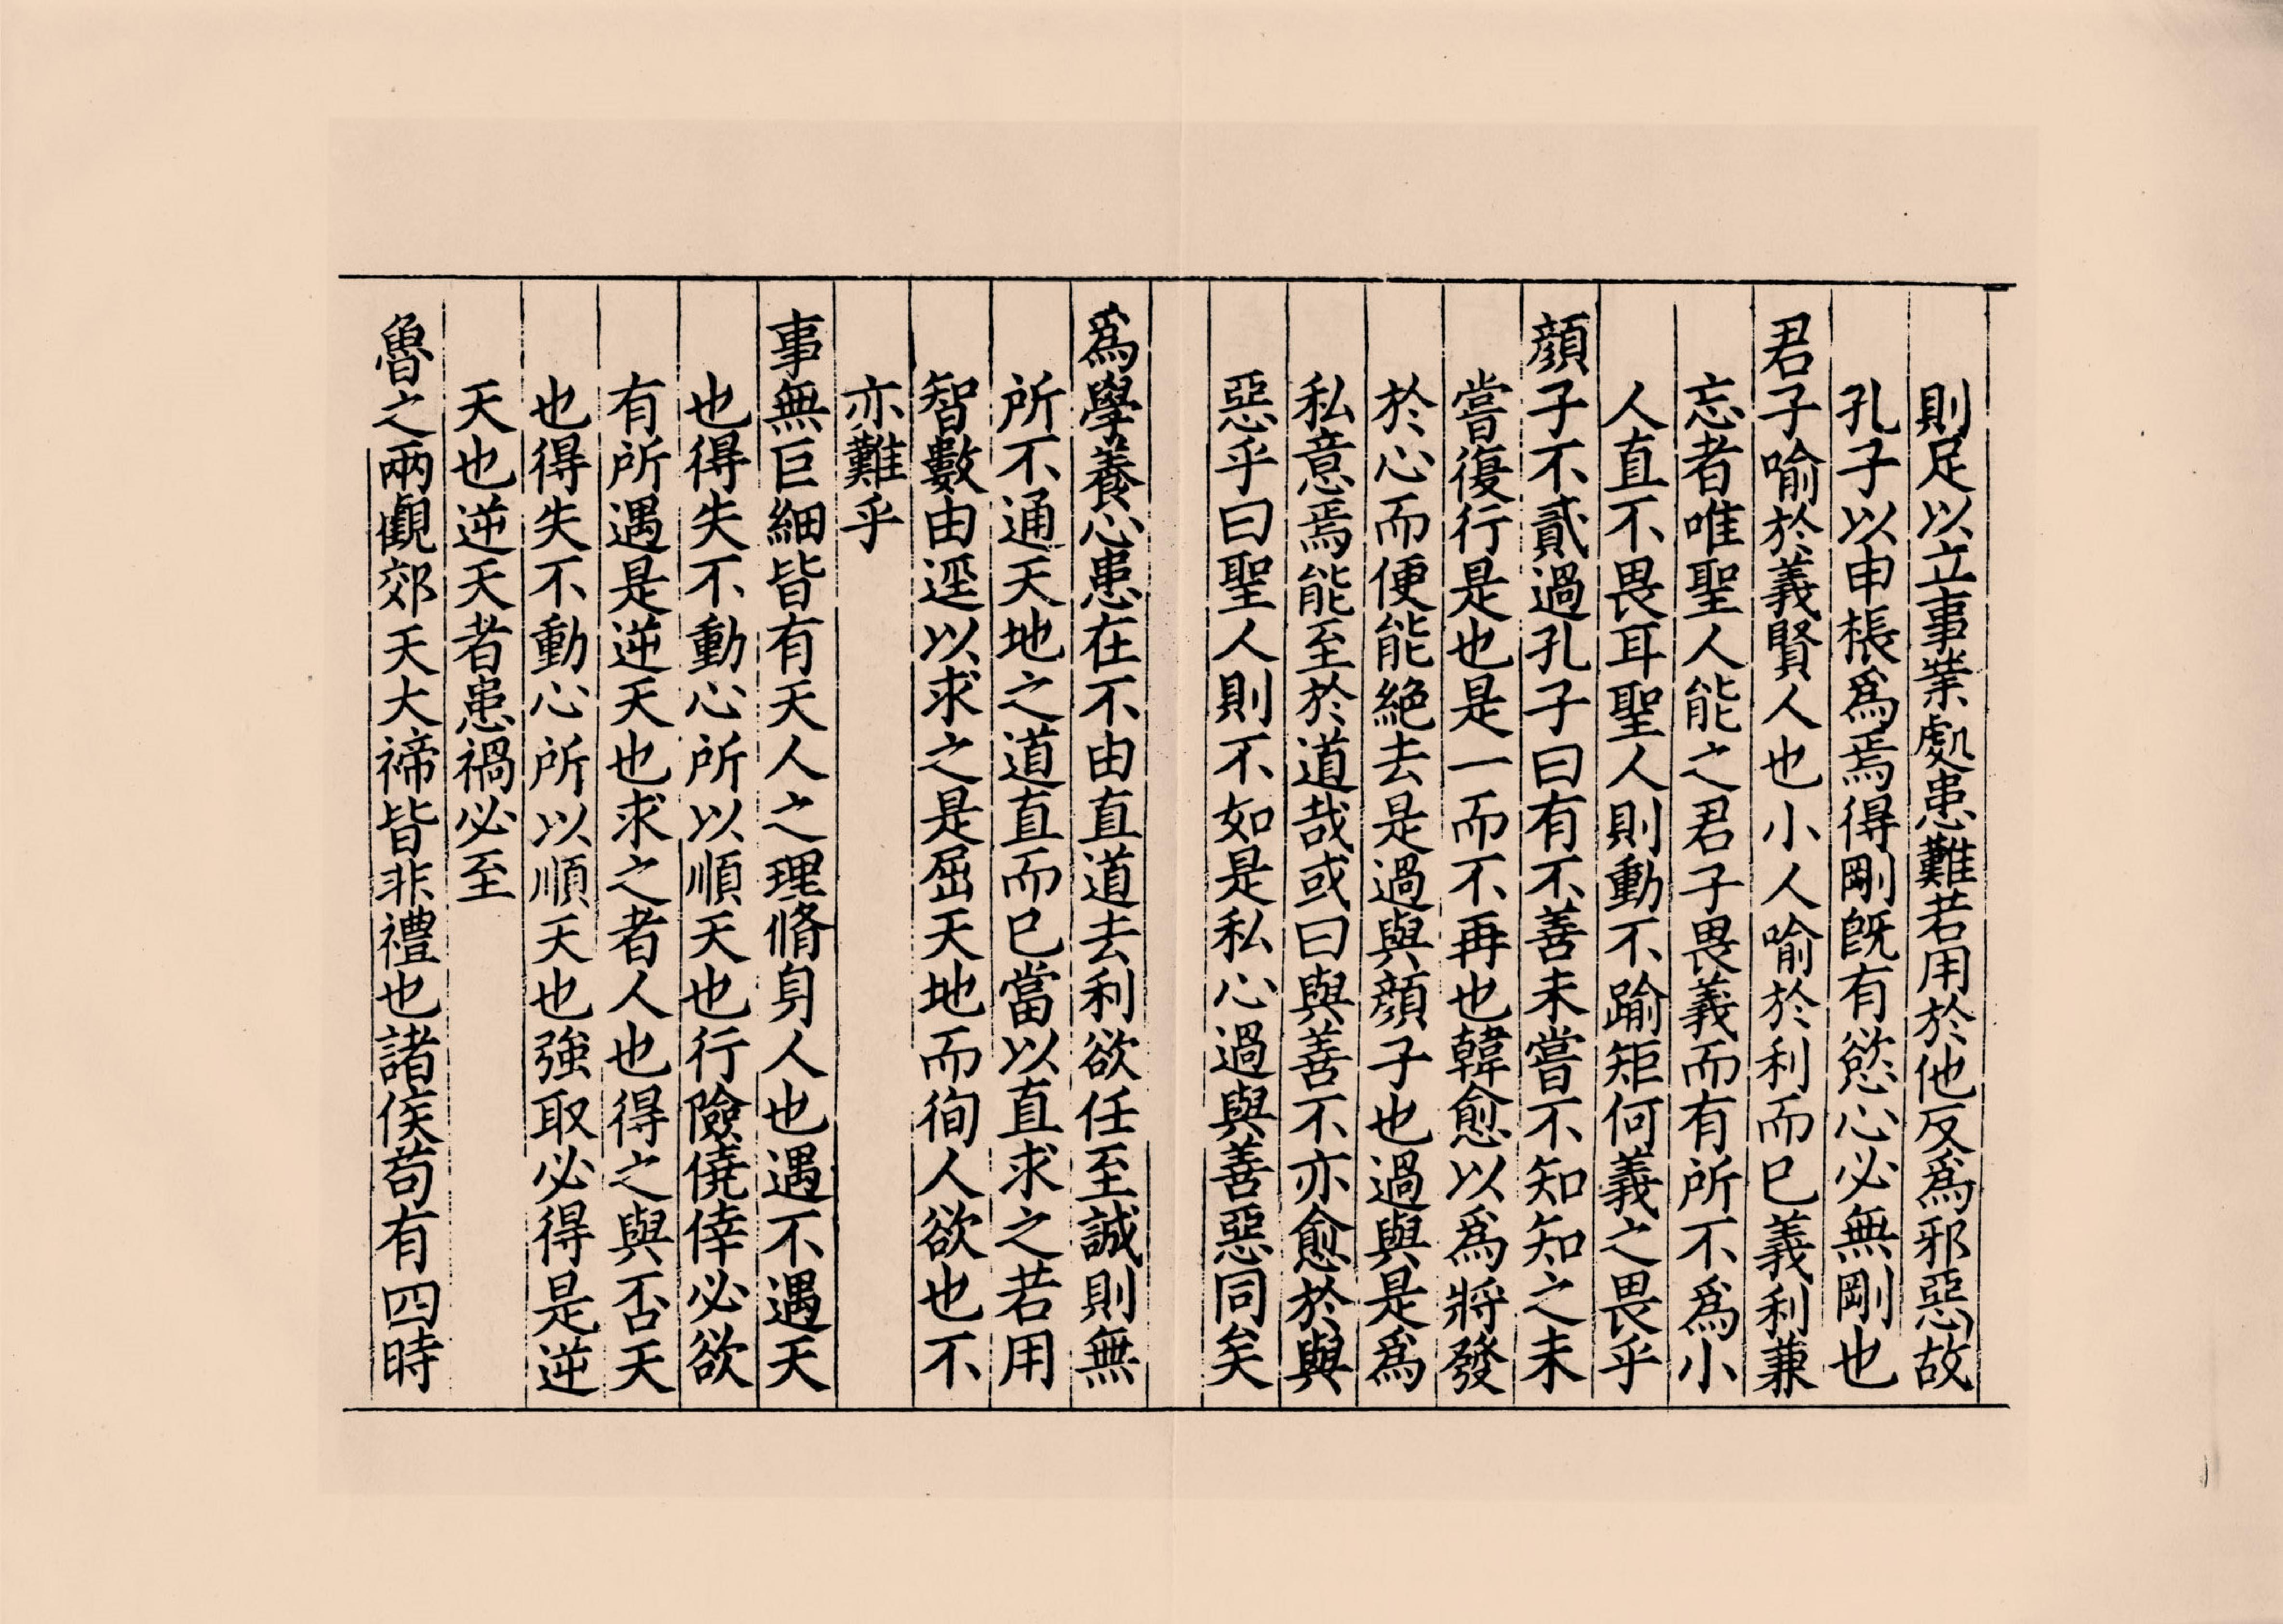 則足以立事業處患難若用於他反爲邪惡故
孔子以申棖爲焉得剛旣有慾心必無剛也
君子喻於義賢人也小人喻於利而已義利兼
忘者唯聖人能之君子畏義而有所不爲小
人直不畏耳聖人則動不踰矩何義之畏乎
顏子不貳過孔子曰有不善未嘗不知知之未
嘗復行是也是一而不再也韓愈以爲將發
於心而便能絕去是過與顏子也過與是爲
私意焉能至於道哉或曰與善不亦愈於與
惡乎曰聖人則不如是私心過與善惡同矣
爲學養心患在不由直道去利欲任至誠則無
所不通天地之道直而已當以直求之若用
智數由逕以求之是屈天地而徇人欲也不
亦難乎
事無巨細皆有天人之理脩身人也遇不遇天
也得失不動心所以順天也行險僥倖必欲
有所遇是逆天也求之者人也得之與否天
也得失不動心所以順天也強取必得是逆
天也逆天者患禍必至
魯之兩觀郊天大禘皆非禮也諸侯苟有四時